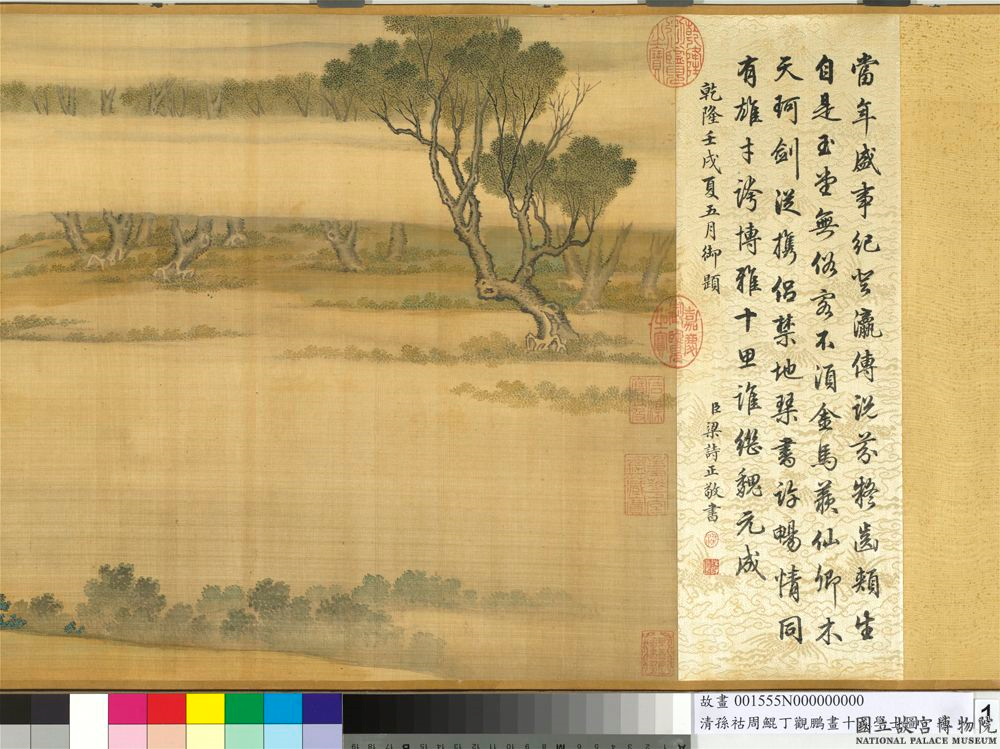 當年盛事紀登瀛傳說芬齒頰生
自是玉堂無俗客不須金馬羨仙卿木
天珂劍從攜侶禁地琴書許暢情同
有雄才誇博雅十思誰繼魏元成
乾隆壬戌夏五月御題
臣梁詩正敬書
乾隆御覽之寶
嘉慶御覽之寶
石渠寶笈
故畫 001555N000000000
清孫祜周鯤丁觀鵬畫十
國立故宮博物院
NATIONAL PALACE MUSEUM
1